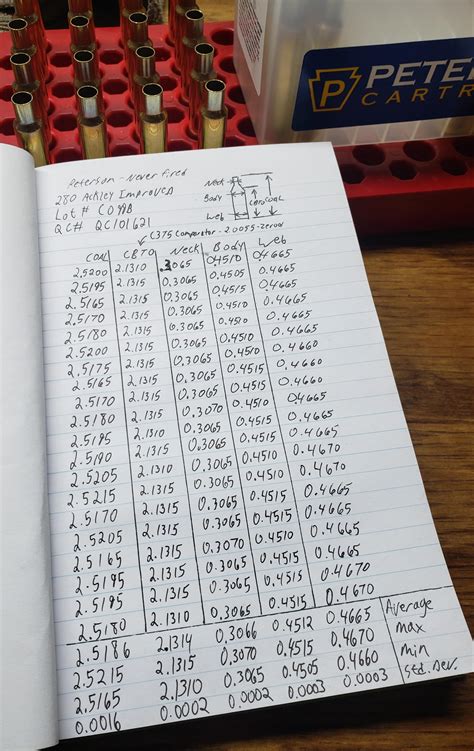 PETE
CARTR
Peterson - Never fired
280 Ackley Improved
Lot # C049B
QC# QC101621
Neck
Body
Web
CBTO COAL
C375 Comparator - 2.0055 - zeroed
COAL CBTO Neck Body Web
2.5200 2.1310 .3065 0.4510 0.4665
2.5195 2.1310 0.3065 0.4505 0.4665
2.5165 2.1315 0.3065 0.4515 0.4665
2.5170 2.1315 0.3065 0.4510 0.4665
2.5180 2.1315 0.3065 0.4510 0.4660
2.5200 2.1315 0.3065 0.4510 0.4660
2.5175 2.1315 0.3065 0.4510 0.4660
2.5165 2.1315 0.3065 0.4515 0.4660
2.5170 2.1315 0.3065 0.4515 0.4660
2.5180 2.1315 0.3070 0.4510 0.4665
2.5195 2.1315 0.3065 0.4515 0.4665
2.5190 2.1315 0.3065 0.4515 0.4670
2.5205 2.1310 0.3065 0.4510 0.4670
2.5215 2.1310 0.3065 0.4515 0.4665
2.5170 2.1315 0.3065 0.4515 0.4665
2.5205 2.1310 0.3065 0.4515 0.4665
2.5165 2.1315 0.3070 0.4510 0.4665
2.5195 2.1315 0.3065 0.4515 0.4665
2.5195 2.1315 0.3065 0.4515 0.4670
2.5180 2.1310 0.3065 0.4515 0.4670
2.5186 2.1314 0.3066 0.4512 0.4665 Average
2.5215 2.1315 0.3070 0.4515 0.4670 Max
2.5165 2.1310 0.3065 0.4505 0.4660 Min
0.0016 0.0002 0.0002 0.0003 0.0003 Std. Dev.